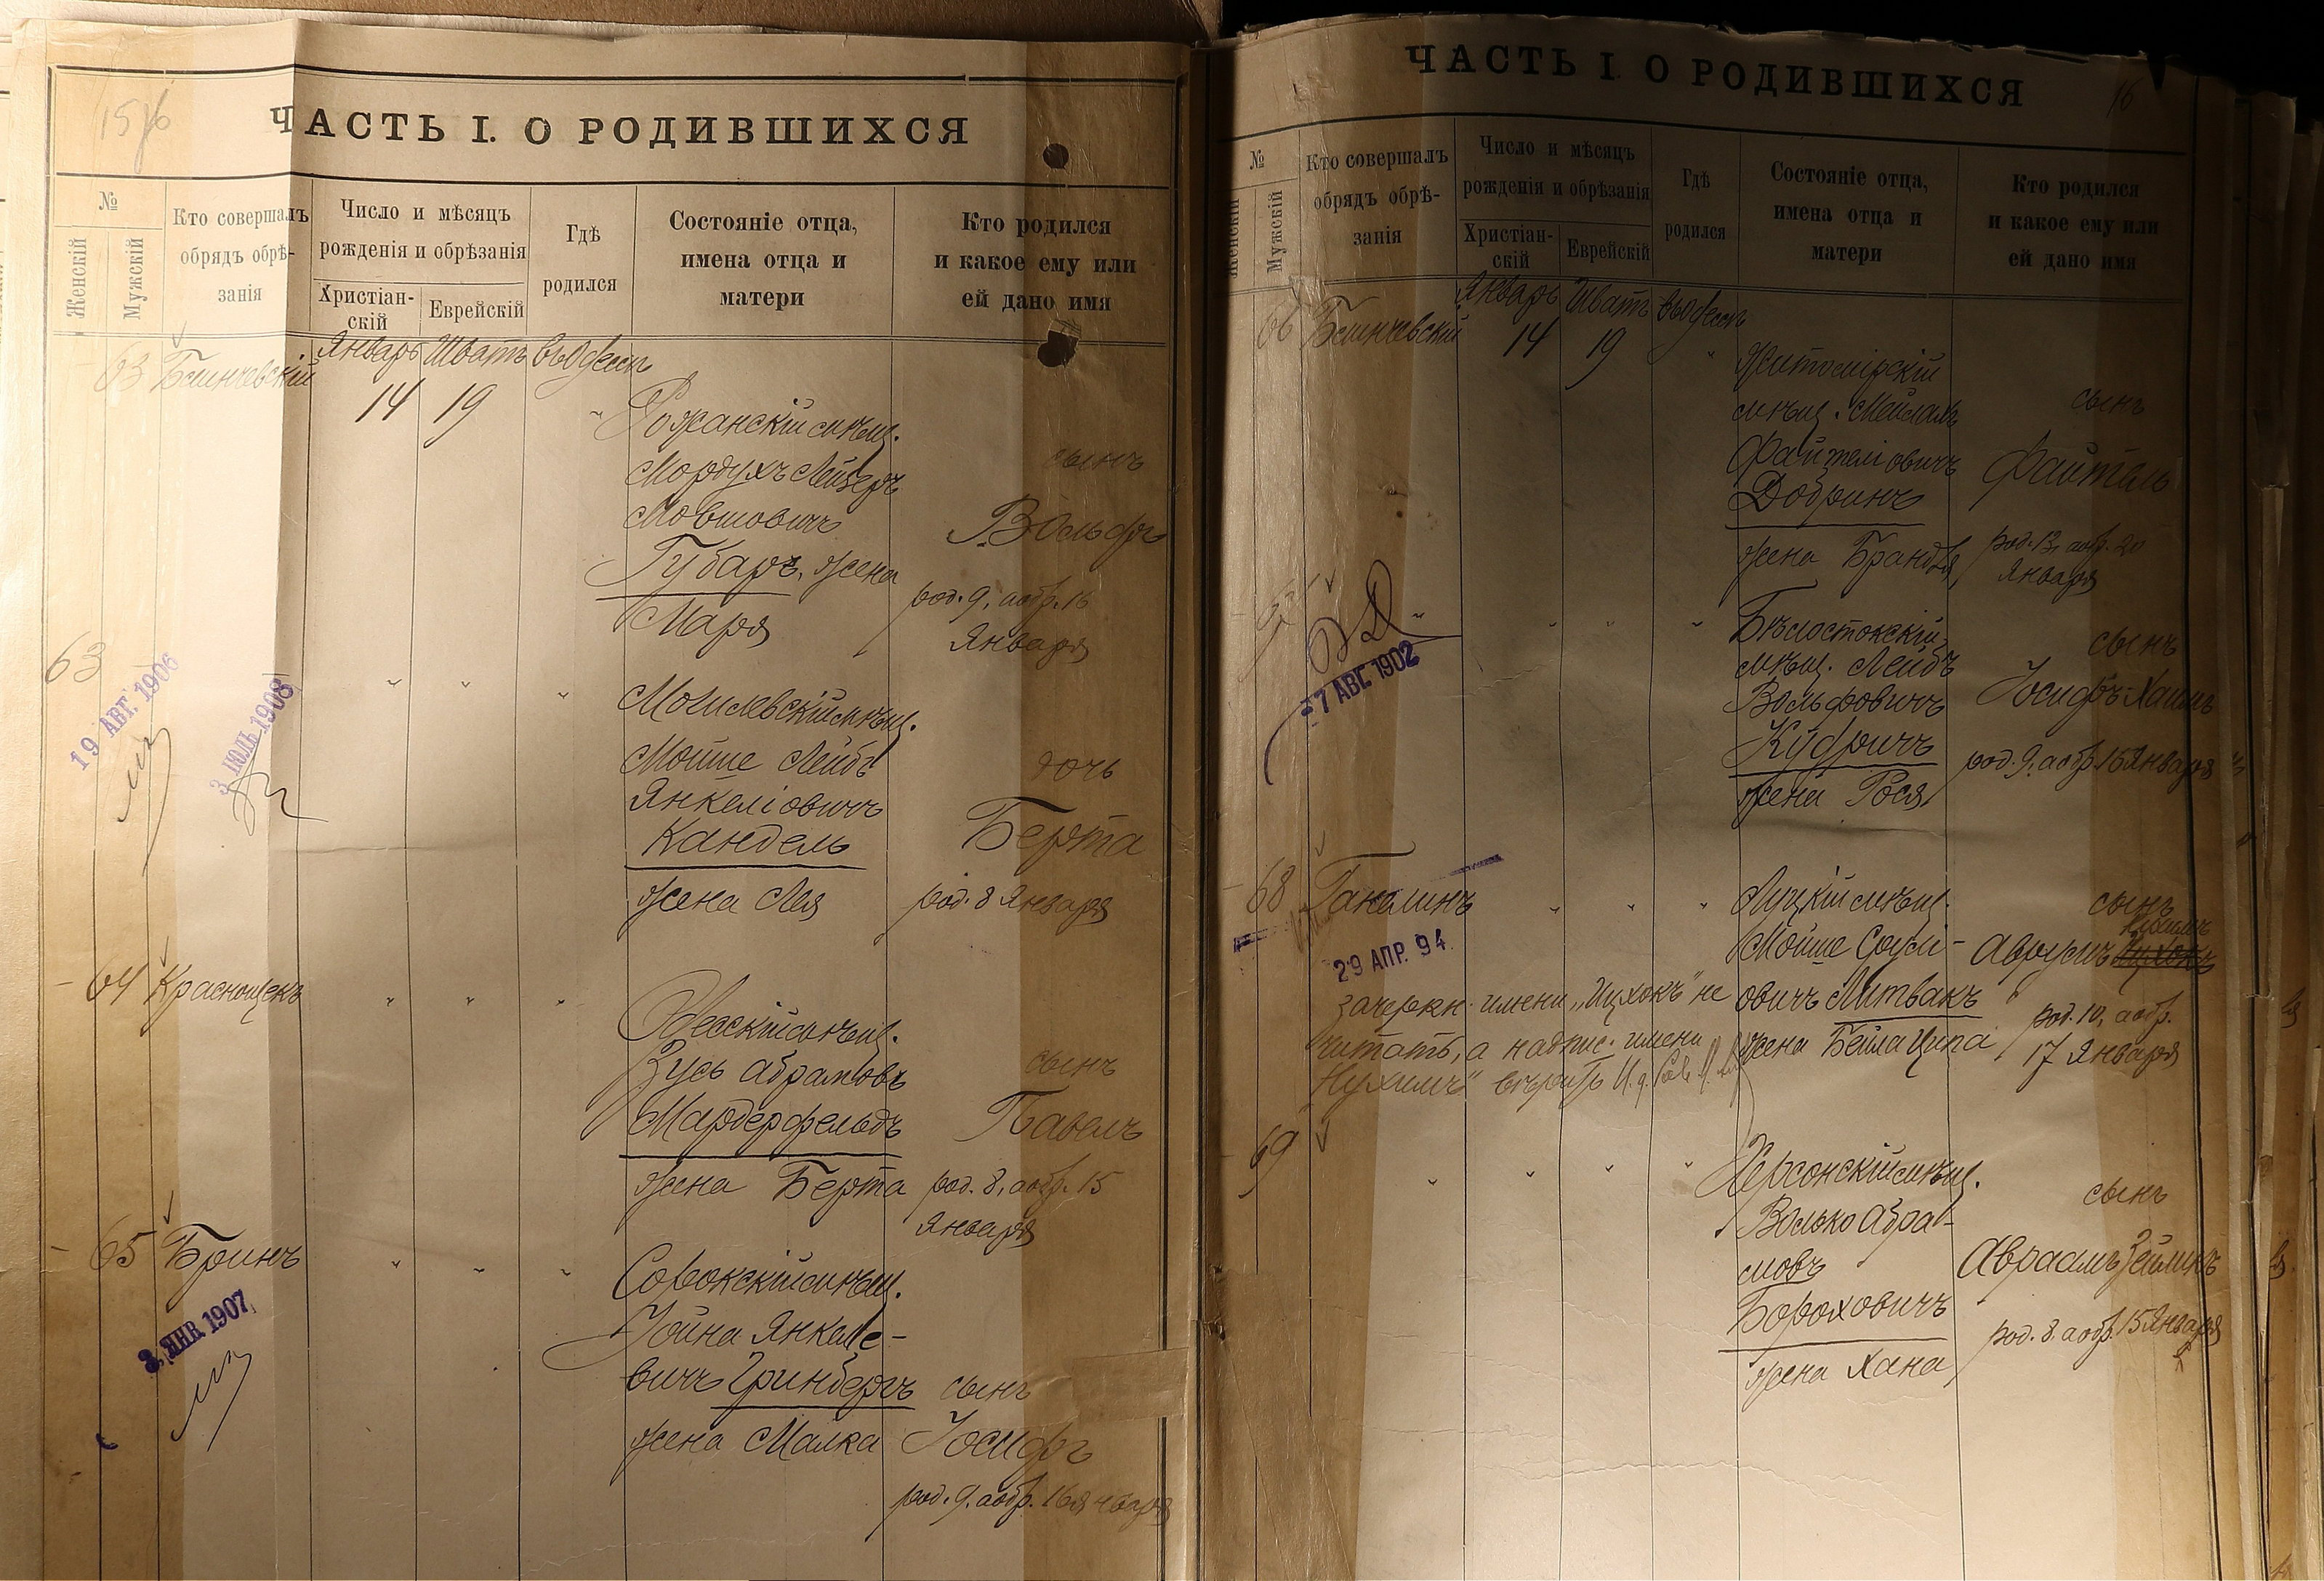 ЧАСТЬ I. О РОДИВШИХСЯ
№
Женскій
Мужскій
Кто совершалъ
обрядъ обрѣ-
занія
Число и мѣсяцъ
рожденія и обрѣзанія
Христіан-
скій
Еврейскій
Гдѣ
родился
Состояніе отца,
имена отца и
матери
Кто родился
и какое ему или
ей дано имя
63
Январь Шватъ въ Одессѣ
14 19 "
Рожанскій мѣщ.
Мордухъ Лейзеръ
Мовшовичъ
Губаръ, жена
Маря
сынъ
Вольфъ
род. 9, а обр. 16
Января
63
19 АВГ. 1906
3 ІЮЛЬ 1908
" " "
Могилевскій мѣщ.
Мойше Лейбъ
Янкеліовичъ
Кандель
жена Лея
дочь
Берта
род. 8 Января
64 Краснощекъ
" " "
Одесскій мѣщ.
Зусь Абрамовъ
Мардерфельдъ
жена Берта
сынъ
Павелъ
род. 8, а обр. 15
Января
65 Бринъ
3 ЯНВ 1907
" " "
Сорокскій мѣщ.
Іойна Янкеле-
вичъ Гринбергъ
жена Малка
сынъ
Іосифъ
род. 9, а обр. 16 января
ЧАСТЬ I. О РОДИВШИХСЯ
16
№
Женскій
Мужскій
Кто совершалъ
обрядъ обрѣ-
занія
Число и мѣсяцъ
рожденія и обрѣзанія
Христіан-
скій
Еврейскій
Гдѣ
родился
Состояніе отца,
имена отца и
матери
Кто родился
и какое ему или
ей дано имя
66
Январь Шватъ въ Одессѣ
14 19 "
Житомірскій
мѣщ. Мейлахъ
Файтеліовичъ
Добринъ
жена Брандля
сынъ
Файтель
род. 13, а обр. 20
Января
7 АВГ. 1902
" " "
Бѣлостокскій
мѣщ. Лейбъ
Вольфовичъ
Кудричъ
жена Рося
сынъ
Іосифъ-Хаимъ
род. 9, а обр. 16 Января
68 Ганелинъ
29 АПР. 94
" " "
Луцкій мѣщ.
Мойше Сруліо-
вичъ Литвакъ
жена Бейла Ципа
сынъ
Нухимъ
Аврумъ Ицхокъ
род. 10, а обр.
17 Января
зачеркн. имени "Ицхокъ" не
читать, а надпис. имени
"Нухимъ" вѣрить
69
" " "
Херсонскій мѣщ.
Волько Абра-
мовъ
Бороховичъ
жена Хана
сынъ
Авраамъ Зейликъ
род. 8, а обр. 15 Января